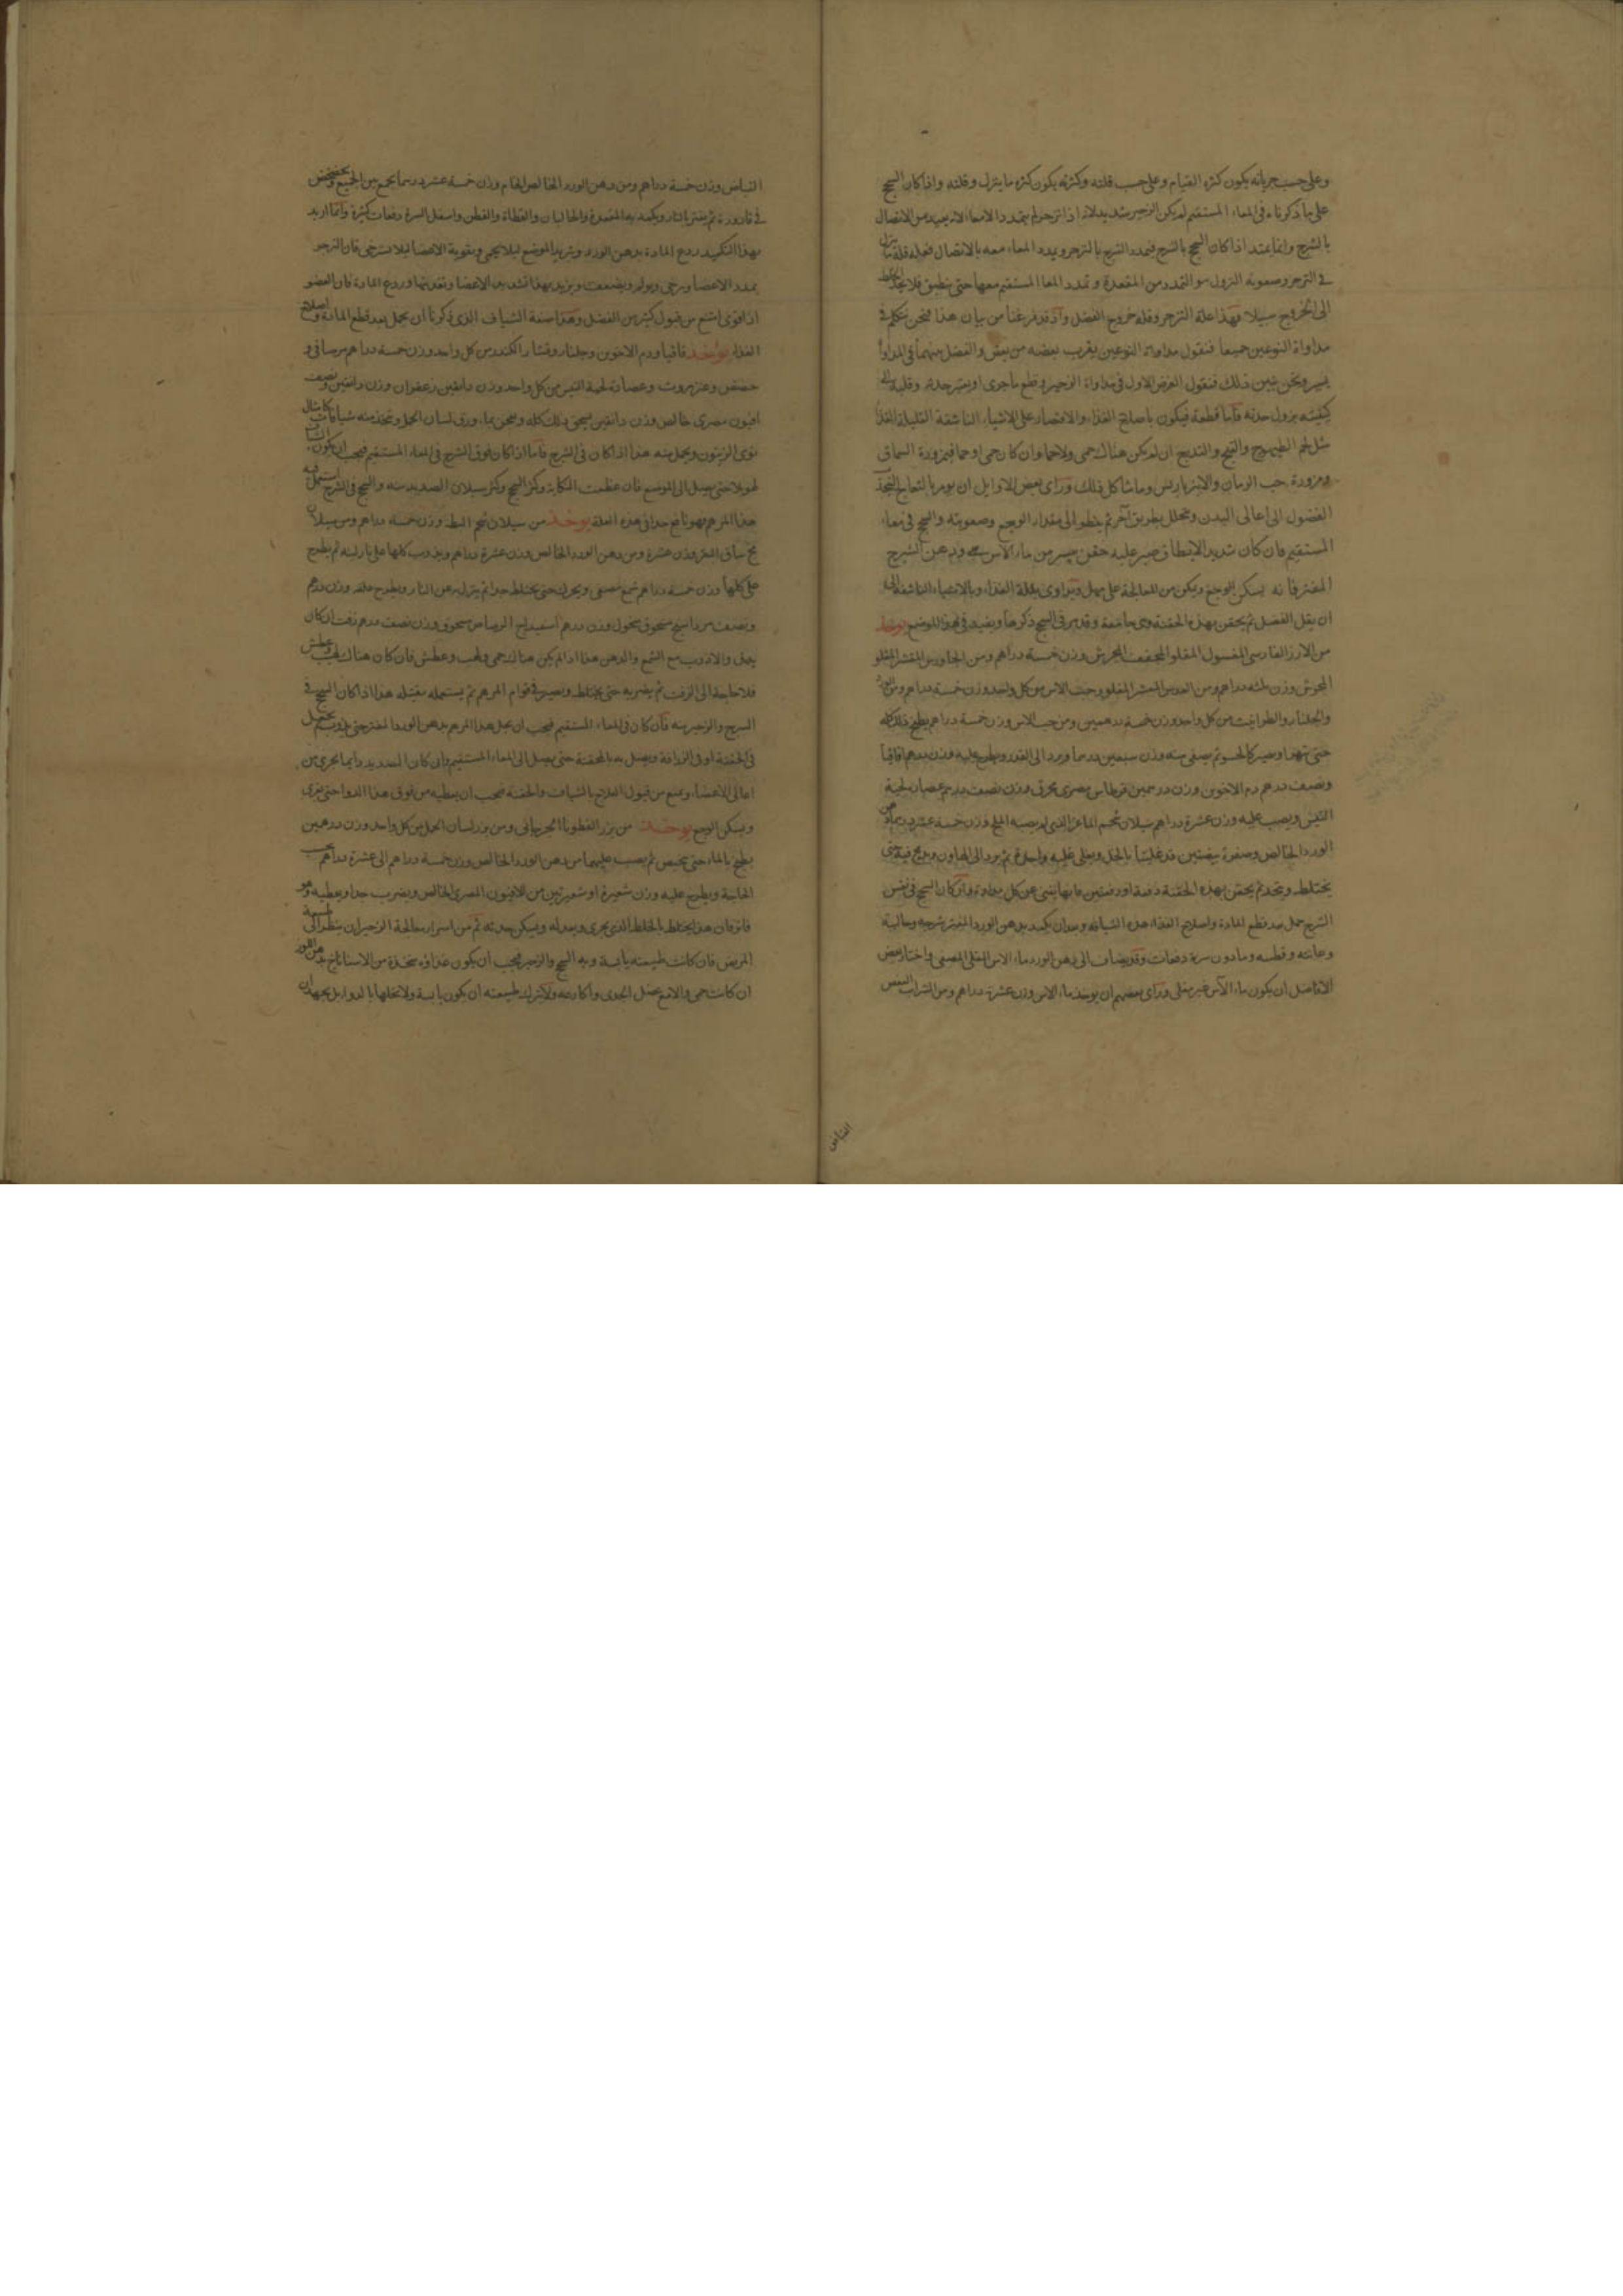 وعلى حسب جريانه يكون كثرة القيام وعلى حسب قلته وكثرته يكون كثرة ما ينزل وقلته واذا كان السحج
على ما ذكرناه في المعاء المستقيم لم يكن الزحير شديدا لانه اذا تزحر لم يتمدد الامعاء لانه بعيد من الاتصال
بالشرج وانما يمتد اذا كان السحج بالشرج فيمدد الشرج بالتزحر ويمدد المعاء معه بالاتصال فعلة قلة ما ينزل
في التزحر وصعوبة النزول هو التمدد من المقعدة وتمدد المعا المستقيم معها حتى ينطبق فلا يجد الخلط
الى الخروج سبيلا فهذا علة التزحر وقلة خروج الفضل واذ قد فرغنا من بيان هذا فنحن نتكلم في
مداواة النوعين جميعا فنقول مداواة النوعين يقرب بعضه من بعض والفضل بينهما في المداواة
يسير ونحن نبين ذلك فنقول الغرض الاول في مداواة الزحير قطع ما جرى او يغير حدته وقلبه الى
كيفية يزول حدته فاما قطعه فيكون باصلاح الغذاء والاقتصار على الاشياء الناشفة القليلة الغذاء
مثل لحم الطيهوج والقبج والتدرج ان لم يكن هناك حمى ولا حما وان كان حمى او حما فمزورة السماق
ومزورة حب الرمان والانبرباريس وما شاكل ذلك وراى بعض الاوايل ان يومر بالتعالج
الفضول الى اعالى البدن وتتحلل بطريق آخر ثم ينظر الى مقدار الوجع وصعوبته والسحج في معاء
المستقيم فان كان شديد الانطباق صبر عليه حقن يسير من ماء الآس ودهن الشيرج
المفتر فانه يسكن الوجع ويكون من المعالجة على مهل ويداوى بقلة الغذاء وبالاشياء الناشفة الى
ان يقل الفضل ثم يحقن بهذه الحقنة وهى جامعة وقد مر في السحج ذكرها ويفيد في هذا الموضع يوخذ
من الارز الفارسي المغسول المقلو المجفف المجرش وزن خمسة دراهم ومن الجاورس المقشر المقلو
المجرش وزن ثلثة دراهم ومن العدس المقشر المقلو وحب الاس من كل واحد وزن خمسة دراهم ومن الورد
والجلنار والطراثيث من كل واحد وزن درهمين ومن حب الاس وزن خمسة دراهم يطبخ ذلك كله
حتى يتهرا ويصير كالحسو ثم يصفى منه وزن سبعين درهما ويرد الى القدر ويطرح عليه وزن درهم اقاقيا
ونصف درهم دم الاخوين وزن درهمين قرطاس مصرى محرق وزن نصف درهم عصارة لحية
التيس ويصب عليه وزن عشرة دراهم سيلان شحم الماعز الذى لم يصبه الملح وزن خمسة عشر درهما دهن
الورد الخالص وصفرة بيضتين قد غليتا بالخل ويغلى غلية واحدة ثم يرد الى الهاون ويدعج فيه حتى
يختلط ويتحد ثم يحقن بهذه الحقنة دفعة او دفعتين فانها يغنى عن كل مداواة وان كان السحج في نفس
الشرج حمل بعد قطع المادة واصلاح الغذاء هذه الشيافة وبعد ان يكمد بدهن الورد المفتر شرجه وحالبيه
وعانته وقطنه وما دون سرته دفعات وقد يضاف الى دهن الورد ماء الاس المغلى المصفى واختار بعض
الافاضل ان يكون ماء الآس غير مغلى وراى بعضهم ان يوخذ ماء الاس وزن عشرة دراهم ومن الشراب العفص
القابض
القابض وزن خمسة دراهم ومن دهن الورد الخالص الخام وزن خمسة عشر درهما يجمع بين الجميع ويخضخض
في قارورة ثم يفتر بالنار ويكمد به المقعدة والحالبان والقطاة والقطن واسفل السرة دفعات كثيرة وانما اريد
بهذا التكميد ردع المادة بدهن الورد وتبريد الموضع ليلا يحمى وبقوية الاعضا ليلا تسترخى فان التزحر
يمدد الاعضا ويرخى ويولم ويضعف ويزيد بهذا تشديد الاعضا وتقويتها وردع المادة فان العضو
اذا قوى امتنع من قبول كثير من الفضل وهذا صفة الشياف الذى ذكرنا ان يحمل بعد قطع المادة واصلاح
الغذاء يوخذ قاقيا ودم الاخوين وجلنار وقشار الكندر من كل واحد وزن خمسة دراهم مر صافي و
حضض وعنزروت وعصارة لحية التيس من كل واحد وزن دانقين زعفران وزن دانقين ونصف
افيون مصرى خالص وزن دانقين يسحق ذلك كله ويعجن بماء ورق لسان الحمل ويتخذ منه شيافات كامثال
نوى الزيتون ويحمل منه هذا اذا كان في الشرج فاما اذا كان فوق الشرج في المعاء المستقيم فيجب ان يكون الشياف
طويلا حتى يصل الى الموضع فان عظمت النكاية وكثر السحج وكثر سيلان الصديد منه والسحج في الشرج استعمل فيه
هذا المرهم فهو نافع جدا في هذه العلة يوخذ من سيلان شحم البط وزن خمسة دراهم ومن سيلان
مخ ساق البقر وزن عشرة ومن دهن الورد الخالص وزن عشرة دراهم ويذوب كلها على نار لينة ثم يطرح
على كلها وزن خمسة دراهم شمع مصفى ويحرك حتى يختلط جدا ثم ينزل عن النار ويطرح عليه وزن درهم
ونصف مرداسنج مسحوق منخول وزن درهم اسفيداج الرصاص مسحوق وزن نصف درهم زفت ان كان
يحلى والا ذوب مع الشمع والدهن هذا اذا لم يكن هناك حمى ولهب وعطش فان كان هناك لهيب وعطش
فلا حاجة الى الزفت ثم يضربه حتى يختلط ويصير في قوام المرهم ثم يستعمله بفتيلة هذا اذا كان السحج في
الشرج والزحير منه فان كان في المعاء المستقيم فيجب ان يحل هذا المرهم بدهن الورد المفتر حتى يذوب ثم يجعل
في الحقنة او في الزراقة ويصل به بالمحقنة حتى يصل الى المعاء المستقيم وان كان الصديد دايما يجرى من
اعالى الاعضاء ويمنع من قبول العلاج بالشياف والحقنة فيجب ان يعطيه من فوق هذا الدوا حتى يغرى
ويسكن الوجع يوخذ من بزر القطونا الجرجانى ومن بزر لسان الحمل من كل واحد وزن درهمين
يطبخ بالماء حتى يخبص ثم يصب عليهما من دهن الورد الخالص وزن خمسة دراهم الى عشرة دراهم بحسب
الحاجة ويطرح عليه وزن شعيرة او شعيرتين من الافيون المصرى الخالص ويضرب جدا ويعطيه وهو
فاتر فان هذا يختلط بالخلط الذى يجرى ويعدله ويسكن حدته ثم من اسرار معالجة الزحير ان ينظر الى طبيعة
المريض فان كانت طبيعته يابسة وبه السحج والزحير فيجب ان يكون غذاؤه متخذة من الاسفاناخ بدهن اللوز
ان كانت حمى والا مع عضل الجدى واكارعه ولا يترك طبيعته ان يكون يابسة ولا يحلها بالدوا بل يجهد ان